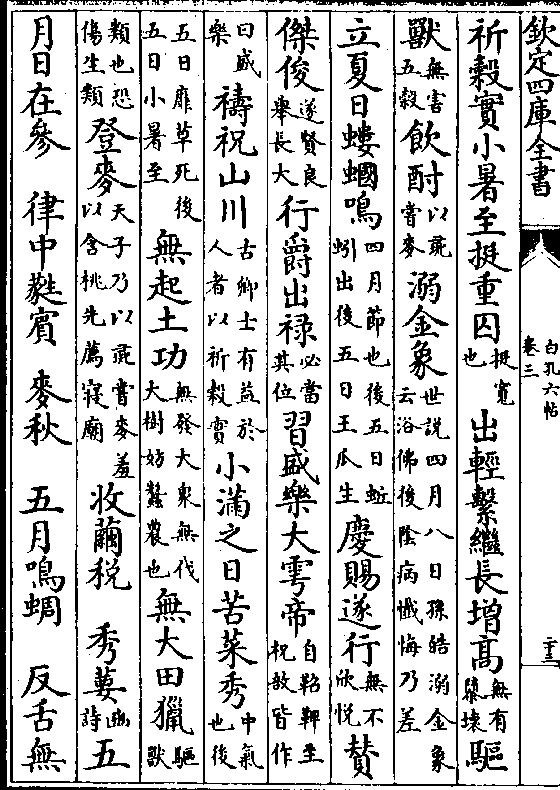 欽定四庫全書
白孔六帖
卷三
二十三
祈穀實小暑至挺重囚挺寛也出輕繫繼長增高無有隳壞驅
獸無害五穀飲酎以彘嘗麥溺金象世説四月八日孫皓溺金象云浴佛後陰病懺悔乃差
立夏日螻蟈鳴四月節也後五日蚯蚓出後五日王瓜生慶賜遂行無不欣悦賛
傑俊遂賢良舉長大行爵出禄必當其位習盛樂大雩帝自鞀鞞至柷敔皆作
曰盛樂禱祝山川古卿士有益於人者以祈穀實小滿之日苦菜秀中氣也後
五日靡草死後五日小暑至無起土功無發大衆無伐大樹妨蠶農也無大田獵驅獸
類也恐傷生類登麥天子乃以彘嘗麥羞以含桃先薦寢廟收繭税 秀葽豳詩五
月日在參 律中蕤賓 麥秋 五月鳴蜩 反舌無